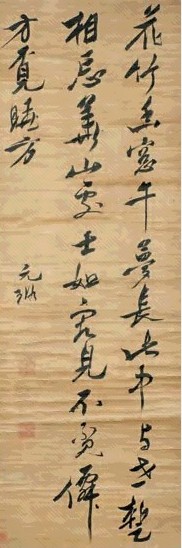 花竹幽窓午夢長此中与世暫
相忘華山处士如容見不覓僊
方覓睡方
元璐